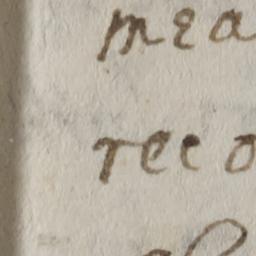 mea
reco